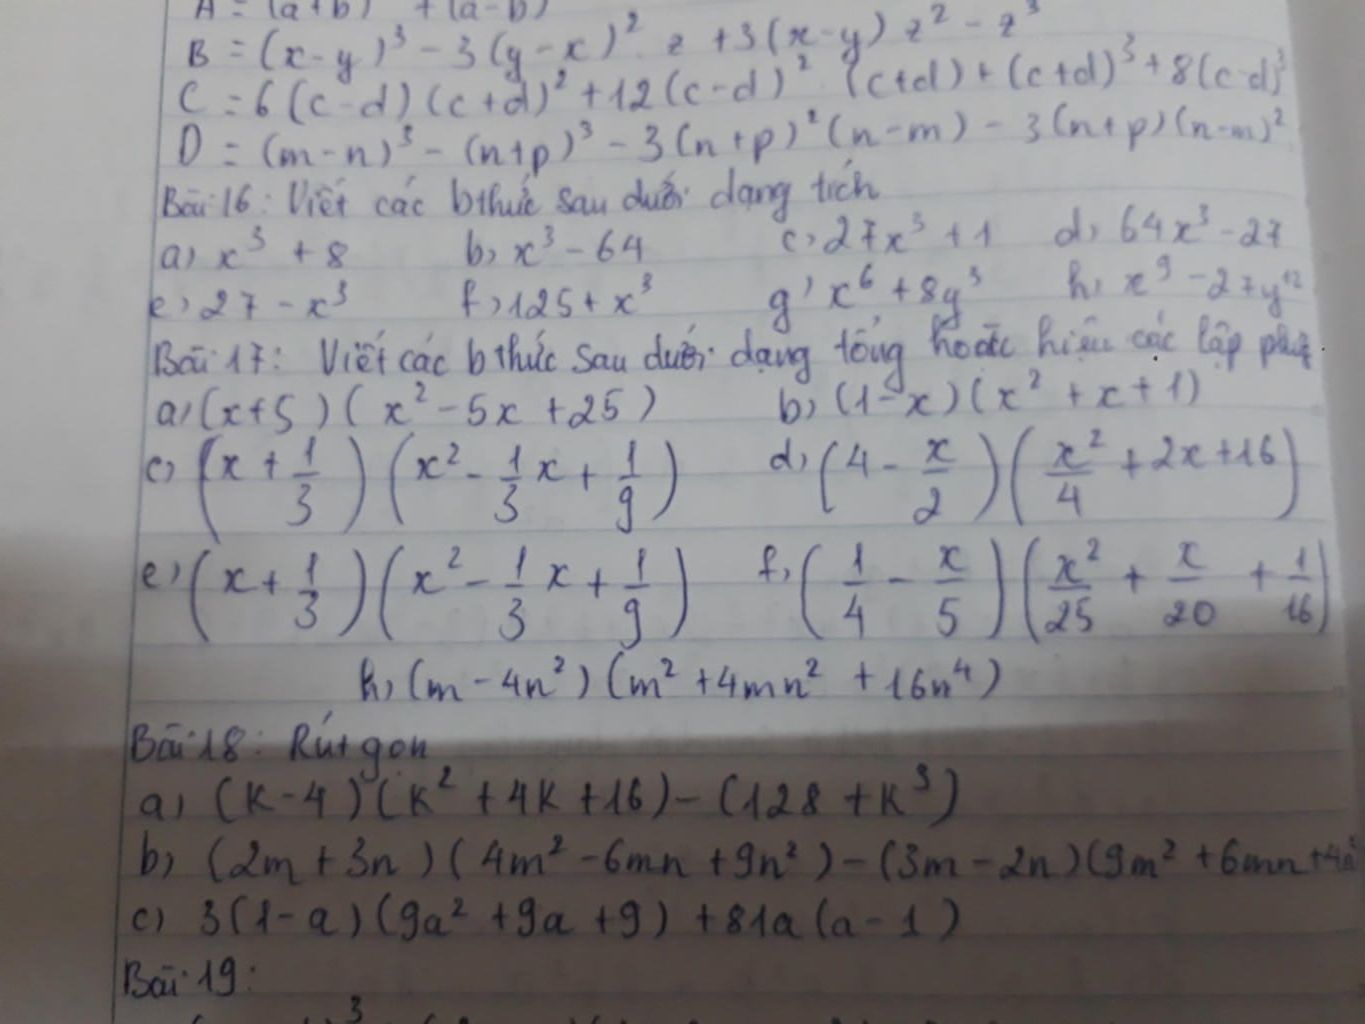 A = (a+b) + (a-b)
B = (x-y)³ - 3(y-x)² z + 3(x-y) z² - z³
C = 6(c-d)(c+d)² + 12(c-d)² (c+d) + (c+d)³ + 8(c-d)³
D = (m-n)³ - (n+p)³ - 3(n+p)²(n-m) - 3(n+p)(n-m)²
Bài 16: Viết các bthức sau dưới dạng tích
a) x³ + 8 b) x³ - 64 c) 27x³ + 1 d) 64x³ - 27
e) 27 - x³ f) 125 + x³ g) x⁶ + 8y³ h) x⁹ - 27y¹²
Bài 17: Viết các bthức sau dưới dạng tổng hoặc hiệu các lập
a) (x+5)(x² - 5x + 25) b) (1-x)(x² + x + 1)
c) (x + 1/3)(x² - 1/3 x + 1/9) d) (4 - x/2)(x²/4 + 2x + 16)
e) (x + 1/3)(x² - 1/3 x + 1/9) f) (1/4 - x/5)(x²/25 + x/20 + 1/16)
h) (m - 4n²)(m² + 4mn² + 16n⁴)
Bài 18: Rút gọn
a) (k-4)(k² + 4k + 16) - (128 + k³)
b) (2m + 3n)(4m² - 6mn + 9n²) - (3m - 2n)(9m² + 6mn + 4n²
c) 3(1-a)(9a² + 9a + 9) + 81a(a-1)
Bài 19: